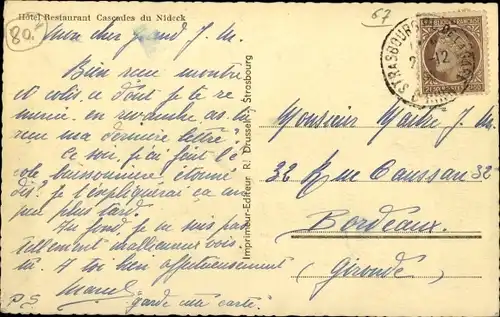 80.
Hôtel Restaurant Cascades du Nideck
67
Mon cher grand J. M.
Bien reçu montre
et colis, ce dont je te re
mercie. en revanche as-tu
reçu ma dernière lettre?
Ce soir, j'ai fait l'é
cole buissonnière étonné
dis? Je t'expliquerai ça un
peu plus tard.
Au fond, je ne suis pas
tellement malheureux vois-
tu. A toi bien affectueusement
Marcel
PS "Garde cette carte."
Imprimeur-Editeur R. Drussel, Strasbourg
STRASBOURG
12
Monsieur Maitre J. M.
32 Rue Caussan 32
Bordeaux.
(Gironde)